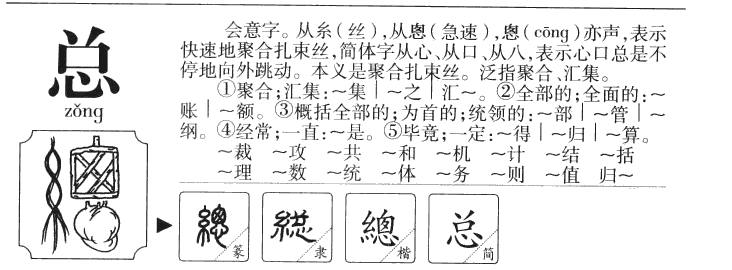 总
zǒng
会意字。从糸(丝),从悤(急速),悤(cōng)亦声,表示
快速地聚合扎束丝,简体字从心、从口、从八,表示心口总是不
停地向外跳动。本义是聚合扎束丝。泛指聚合、汇集。
①聚合;汇集:~集|~之|汇~。②全部的;全面的:~
账|~额。③概括全部的;为首的;统领的:~部|~管|~
纲。④经常;一直:~是。⑤毕竟;一定:~得|~归|~算。
~裁 ~攻 ~共 ~和 ~机 ~计 ~结 ~括
~理 ~数 ~统 ~体 ~务 ~则 ~值 归~
總 篆
総 隶
總 楷
总 简